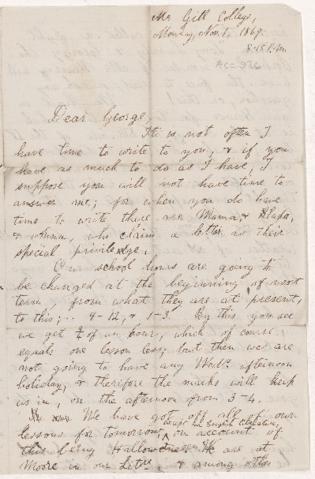 Mc Gill College,
Monday, Nov. 1, 1869.
8.15 P.M.
Dear George,
It is not often I
have time to write to you, & if you
have as much to do as I have, I
suppose you will not have time to
answer me; for when you do have
time to write there are Mama, & Papa,
& Anna, who claim a letter as their
special priviledge.
Our school hours are going to
be changed at the beginning of next
term, from what they are at present,
to this;.. 9-12, & 1-3. By this you see
we get ¾ of an hour, which of course,
equals one lesson less; but then we are
not going to have any Wed. afternoon
holiday, & therefore the marks will keep
us in, on the afternoon from 3-4.
We have got off all of our
except the English Literature,
lessons for tomorrow, on account of
this being Halloween. We are at
Moore in our Lit, & among other